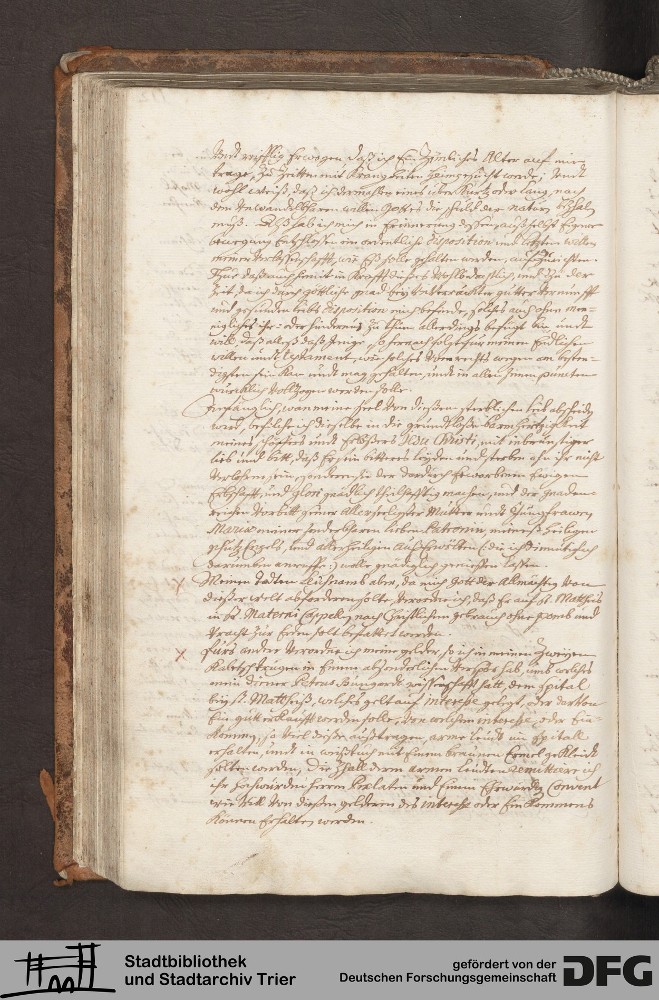 undt reifflig erwogen daß ich ein Zimliches Alter auf mir
trage, zu Zeitten mit Kranckheiten heimgesucht werde, undt
wohl weiß, daß ich dermahlen eines uber Kurtz oder lang, nach
dem unwandelbharen willen Gottes die schuldt der natur bezhalen
muß. Deß hab ich mich in erinnerung dessen auß selbst Eigner
bewegung entschlossen ein ordentliche disposition und letzten willen
meiner verlassenschafft, wie eß solle gehalten werden, auffzurichten.
Thue daß auch hiemit in Krafft dieses wohlbedachtlich, und zu der
Zeit da ich durch göttliche gnad bey unverruckter gutter vernunfft
und gesunden leibs disposition mich befinde, solches auch ohne men-
nigliches ihr- oder hindernus zu thun allerdings befugt bin, undt
will, daß alleß daß Jenige, so hernach folgt fur meinen Endlichen
willen undt testament, wie solches von rechts wegen am bestän-
digsten sein kan undt mag gehalten, undt in allen seinen puncten
würcklich vollzogen werden solle.
Anfänglich, wan meine seel von diesem sterblichen leib abscheiden
wird, befihle ich dieselbe in die grundtloße barmhertzigkeit
meines schöpfers undt Erlößers Jesu Christi, mit inbrünstiger
lieb und bitt, daß Er sein bitteres leyden und sterben ahn ihr nicht
verlohren sein, sonderen sie der dardurch erworbenen Ewigen
Erbschafft, und glori gnädlich theilhafftig machen, und der gnaden-
reichen vorbitt seiner allerseeligsten Mutter undt Jungfrawen
Mariae meiner sonderbharen lieben Patronin, meines heiligen
schutz Engels, und aller heiligen Außerwölten (: die ich demütiglich
darumben anruffe :) wolle gnädiglich geniessen lassen.
Meinen todten leichnamb aber, da mich Gott der Allmächtig von
dieser welt abforderen solte, verordne ich, daß er auf St. Matthiaß
in St. Materni Cappell, nach Christlichem gebrauch ohne pomb und
Pracht zur Erden solt bestattet werden.
Fürs ander verordne ich meine gelder, so ich in meinen zweyen
in Einem absonderlichen hab, und welches
mein diener Petrus wissenschafft hatt, dem spital
bey St. Mattheiß, welches gelt auf interesse gelegt, oder darvon
Ein gutt erkaufft werden solle, von welchem interesse, oder Ein
komens, so viel diese außtragen, arme leudt im spitall
erhalten, undt in weißtuch mit Einem braunen Ermel gekleidt
sollen werden, die Zhall deren armen leudten remittire ich
ihr hochwürden herren Prelaten und Einem Ehrwürdig Convent
wie viell von diesen gelderen des interesse oder Einkommens
können erhalten werden.
Stadtbibliothek
und Stadtarchiv Trier
gefördert von der
Deutschen Forschungsgemeinschaft
DFG